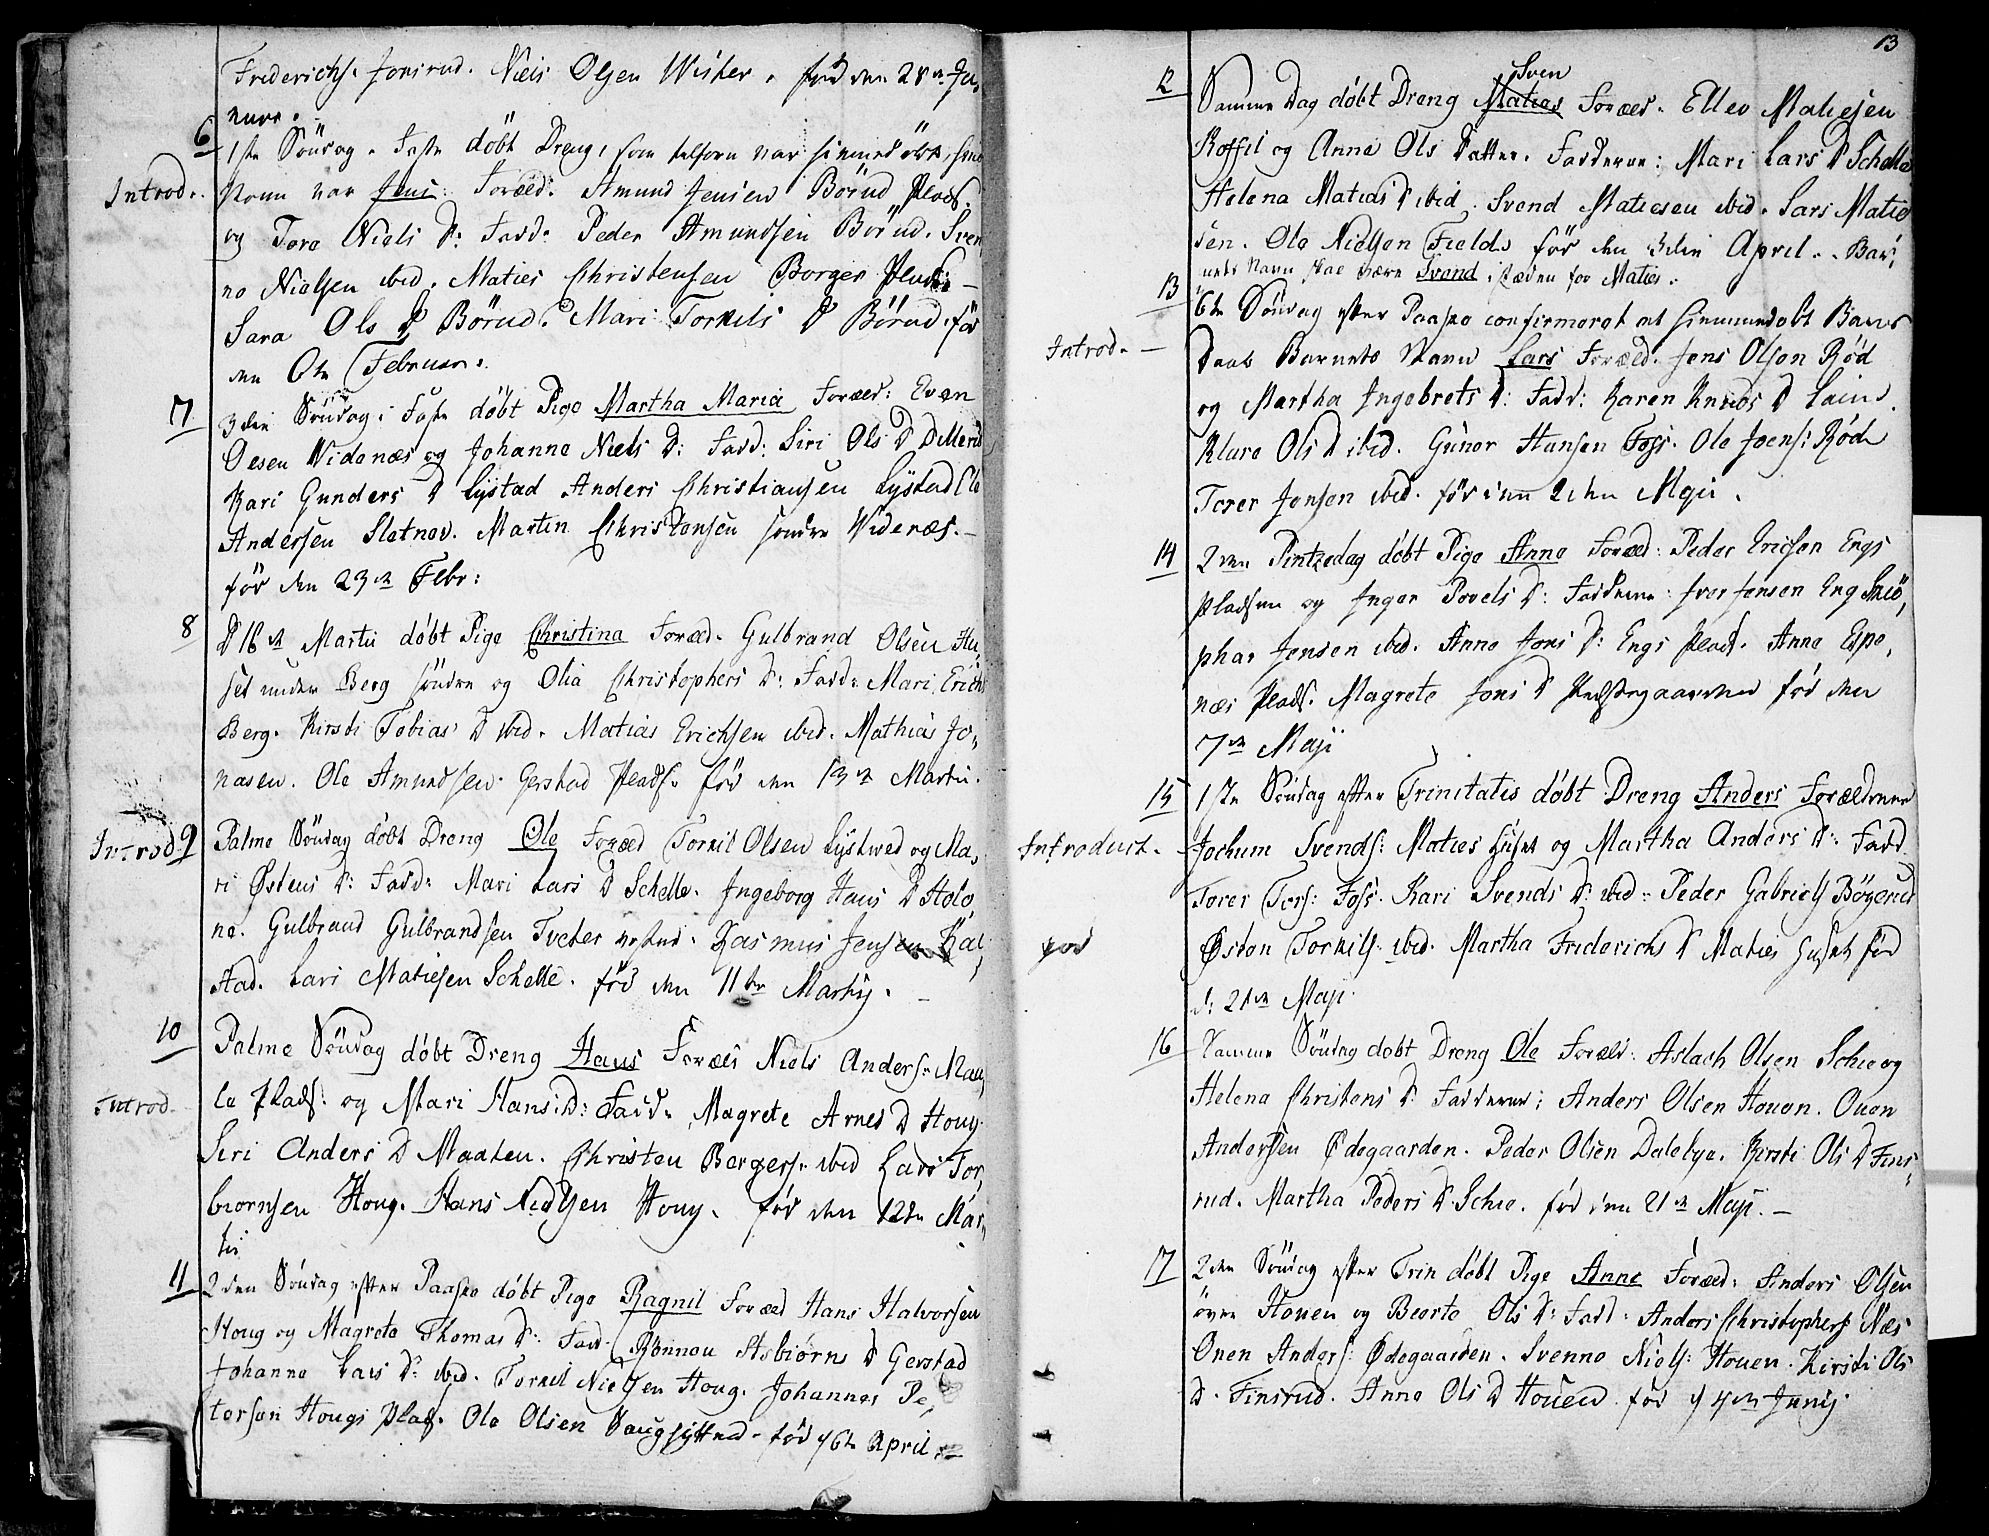 Friderichs. Jonsrud. Niels Olsen Wister. fød den 28de Ja,
nuar.
6
1ste Söndag. Faste döbt Dreng, som var hiemmedöbt,
Introd. Navn var Jens. Foræld. Amund Jensen Börud Plads.
og Tore Niels D: Fadd: Peder Amundsen Börud. Sven
no Nielsen ibid. Maties Christensen Borger Plads. –
Sara Ols D Börud. Mari Torkils D Börud. fød
den 6te Februar.
7 3die Söndag i Faste döbt Pige Martha Maria Foræld: Even
Oesen Widenæs og Johanne Niels D: Fadd: Siri Ols D Dillerud
Kari Gunders D Lystad Anders Christiansen Lystad Ole
Andersen Sletnev. Martin Christensen söndre Widenæs. –
fød den 23de Febr:
8 D 18de Martii döbt Pige Christina Foræld. Gulbrand Olsen Hu,
set under Berg söndre og Olia Christophers D: Fadd: Mari Erichs
Berg. Kirsti Tobias D ibid. Matias Erichsen ibid. Mathias Jo,
nasen. Ole Amundsen Gerstad Plads. fød den 13de Martii.
Introd. 9 Palme Söndag döbt Dreng Ole Foræld Torkil Olsen Lystwed og Ma,
ri Østens D: Fadd: Mari Lars D Schelle. Ingeborg Hans D Holo
ne. Gulbrand Gulbrandsen Tveter Rasmus Jensen
stad. Lars Matiesen Schelle. fød den 11te Martij. –
10 Palme Söndag döbt Dreng Hans Foræld Niels Anders.
Introd. le Plads. og Mari Hans D: Fadd. Magrete Arnes D Houg.
Siri Anders D Maaten. Christen Bergers. ibid Lars Tor,
biornsen Houg. Hans Nielsen Houg. fød den 12te Mar,
tii
11 2den Söndag efter Paaske döbt Pige Ragnil Foræld Hans Halvorsen
Houg og Magrete Thomas D: Fadd. Rönnou Asbiørns D Gerstad
Johanne Lars D: ibid. Torkil Nielsen Houg. Johannes Pe,
tersen Hougs Plads. Ole Olsen fød 6te April.
13
Sven
12 Samme Dag döbt Dreng Maties Foræld. Ellev Matiesen
Koffil og Anne Ols Datter. Fadderne: Mari Lars D Schelle
Helena Matias D ibid. Svend Matiesen ibid. Lars Matie
sen. Ole Nielsen Fields fød den 3die April. Bar,
nets Navn skal være Svend, isteden for Maties.
13 6te Söndag efter Paaske confirmeret et hiemmedöbt Barns
Introd. – Daab Barnets Navn Lars Foræld. Jens Olsen Röd
og Martha Ingebrets D: Fadd: Karen Knuds D
Klare Ols D ibid. Guner Hansen Foss. Ole Joens: Röd
Torer Jonsen ibid. fød den 2den Maji.
14 2den Pintzedag döbt Pige Anne Foræld: Peder Ericsen Engs
Pladsen og Inger Povels D: Fadderne: Iver Jensen Eng
phar Jensen ibid. Anne Jons D: Engs Plads. Anne Espe,
næs Plads. Magrete Jons D Prestegaarden fød den
7de Maji
15 1ste Söndag efter Trinitatis döbt Dreng Anders Forældrene
Introduct. – Jochum Svends: Maties Huset og Martha Anders D: Fadd
Torer Tors: Foss. Kari Svends D: ibid: Peder Gabriels Bögerud
Østen Torkils. ibid. Martha Friderichs D Maties Huset fød
d: 21de Maji.
16 Samme Söndag döbt Dreng Ole Foræld: Aslach Olsen Schie og
Helena Christens D Fadderne: Anders Olsen Houen. Ouen
Andersen Ödegaarden. Peder Olsen Dalebye. Kirsti Ols D Fins,
rud. Martha Peders D Schie. fød den 21de Maji. –
17 2den Söndag efter Trin döbt Pige Anne Foræld: Anders Olsen
öure Houen og Beorte Ols D: Fadd: Anders Christophers Næs
Onen Anders: Ödegaarden. Svenno Niels: Houen. Kirsti Ols
D. Finsrud. Anne Ols D Houen. fød d 4de Junij.